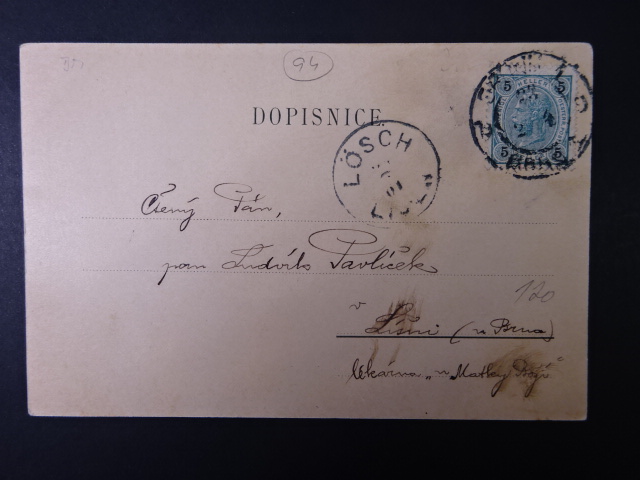 94
DOPISNICE
5 5
5 5
LÖSCH
Ctěný Pán,
pan Ludvík Pavlíček
v
Líšni (u Brna)
lékárna „u Matky Boží“
120